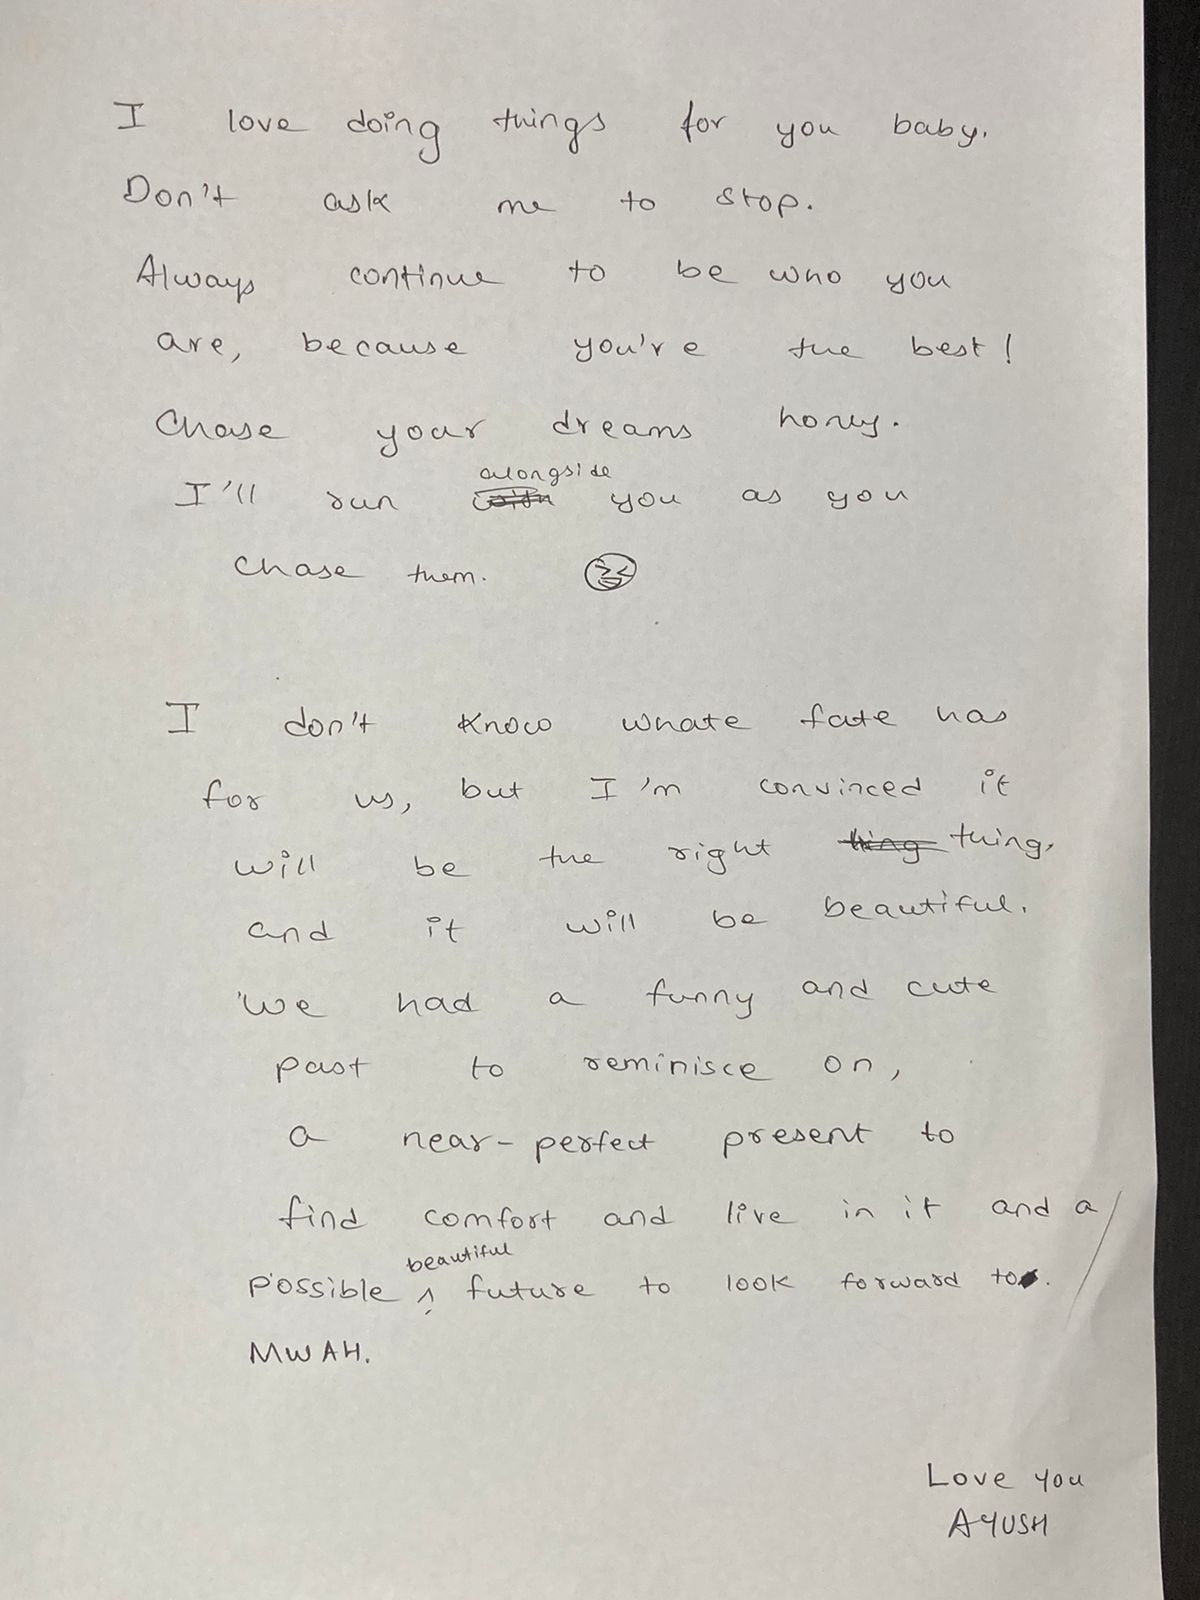 I love doing things for you baby.
Don't ask me to stop.
Always continue to be who you
are, because you're the best!
Chase your dreams honey.
alongside
I'll run with you as you
chase them.
I don't know whate fate has
for us, but I'm convinced it
will be the right thing thing,
and it will be beautiful.
We had a funny and cute
past to reminisce on,
a near-perfect present to
find comfort and live in it and a
beautiful
possible ^ future to look forward to.
MWAH.
Love you
AYUSH